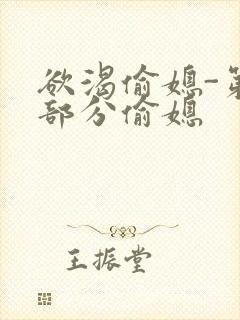 欲渴偷媳-第
部分偷媳
王振堂